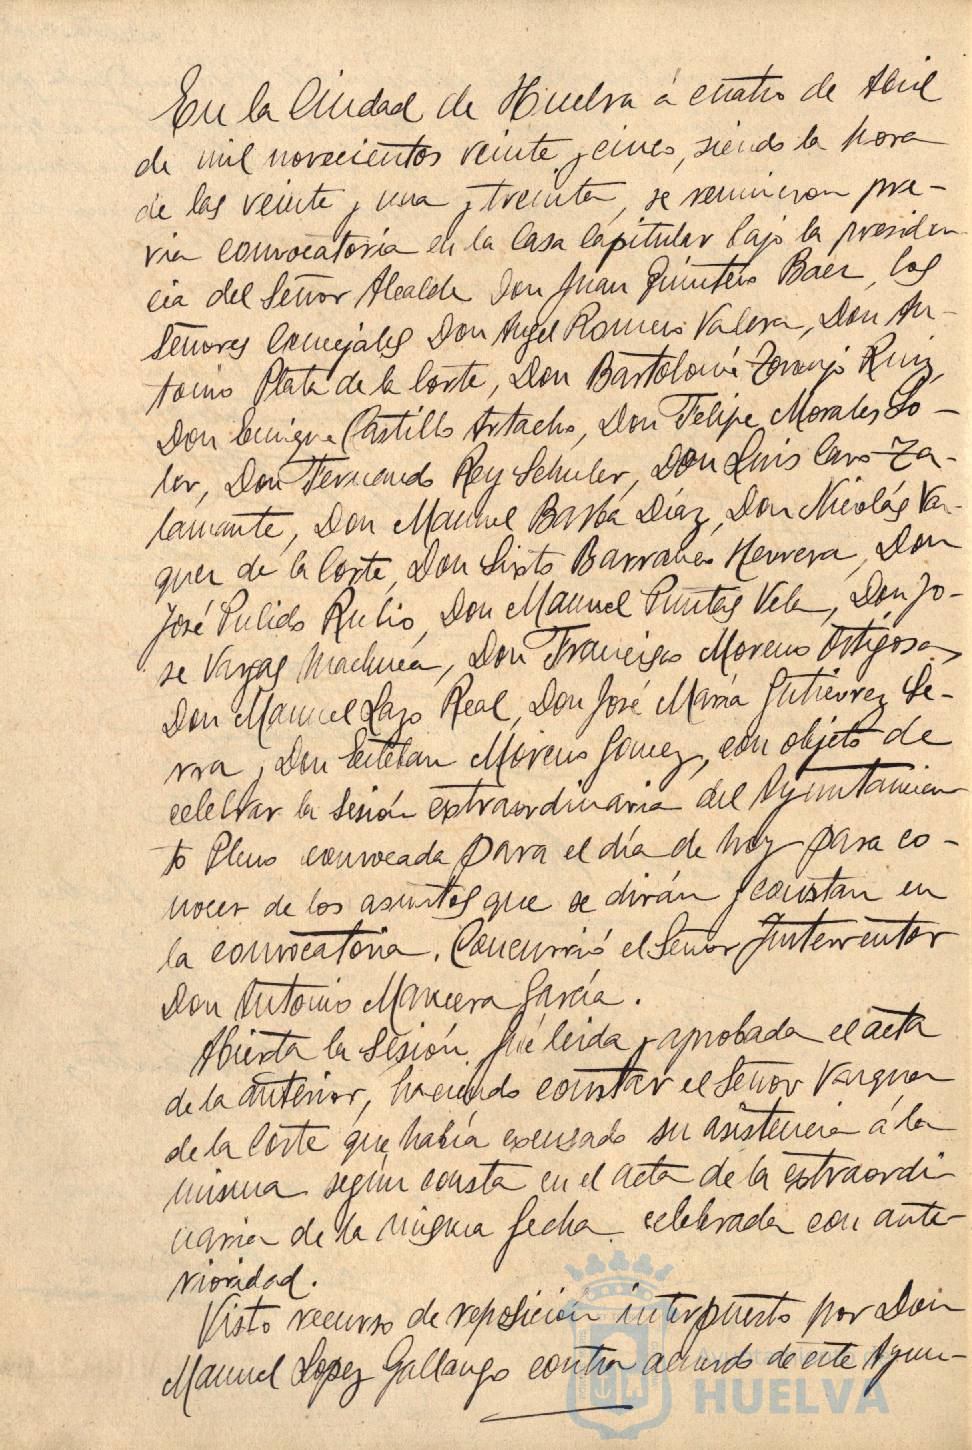 En la Ciudad de Huelva á cuatro de Abril
de mil novecientos veinte y cinco, siendo la hora
de las veinte y una y treinta, se reunieron pre-
via convocatoria en la Casa Capitular bajo la presiden
cia del Señor Alcalde Don Juan Quintero Baez, los
Señores Concejales Don Angel Romero Valera, Don An-
tonio Plata de la Corte, Don Bartolomé Toronjo Ruiz,
Don Enrique Castillo Artacho, Don Felipe Morales So-
ler, Don Fernando Rey Schuler, Don Luis Caro Za-
lamante, Don Manuel Barba Díaz, Don Nicolás Vaz-
quez de la Corte, Don Sixto Barranco Herrera, Don
José Pulido Rubio, Don Manuel Puntas Vela, Don Jo-
se Vargas Machuca, Don Francisco Moreno Ortigosa,
Don Manuel Lazo Real, Don José María Gutierrez Se-
rra y Don Esteban Moreno Gomez, con objeto de
celebrar la sesión extraordinaria del Ayuntamien
to Pleno convocada para el día de hoy para co-
nocer de los asuntos que se dirán y constan en
la convocatoria. Concurrió el Señor Interventor
Don Antonio Mancera García.
Abierta la Sesión, fué leida y aprobada el acta
de la anterior, haciendo constar el Señor Vazquez
de la Corte que había excusado su asistencia á la
misma según consta en el acta de la extraordi
naria de la misma fecha celebrada con ante-
rioridad.
Visto recurso de reposición interpuesto por Don
Manuel Lopez Gallango contra acuerdo de este Ayun-
Ayuntamiento de
HUELVA